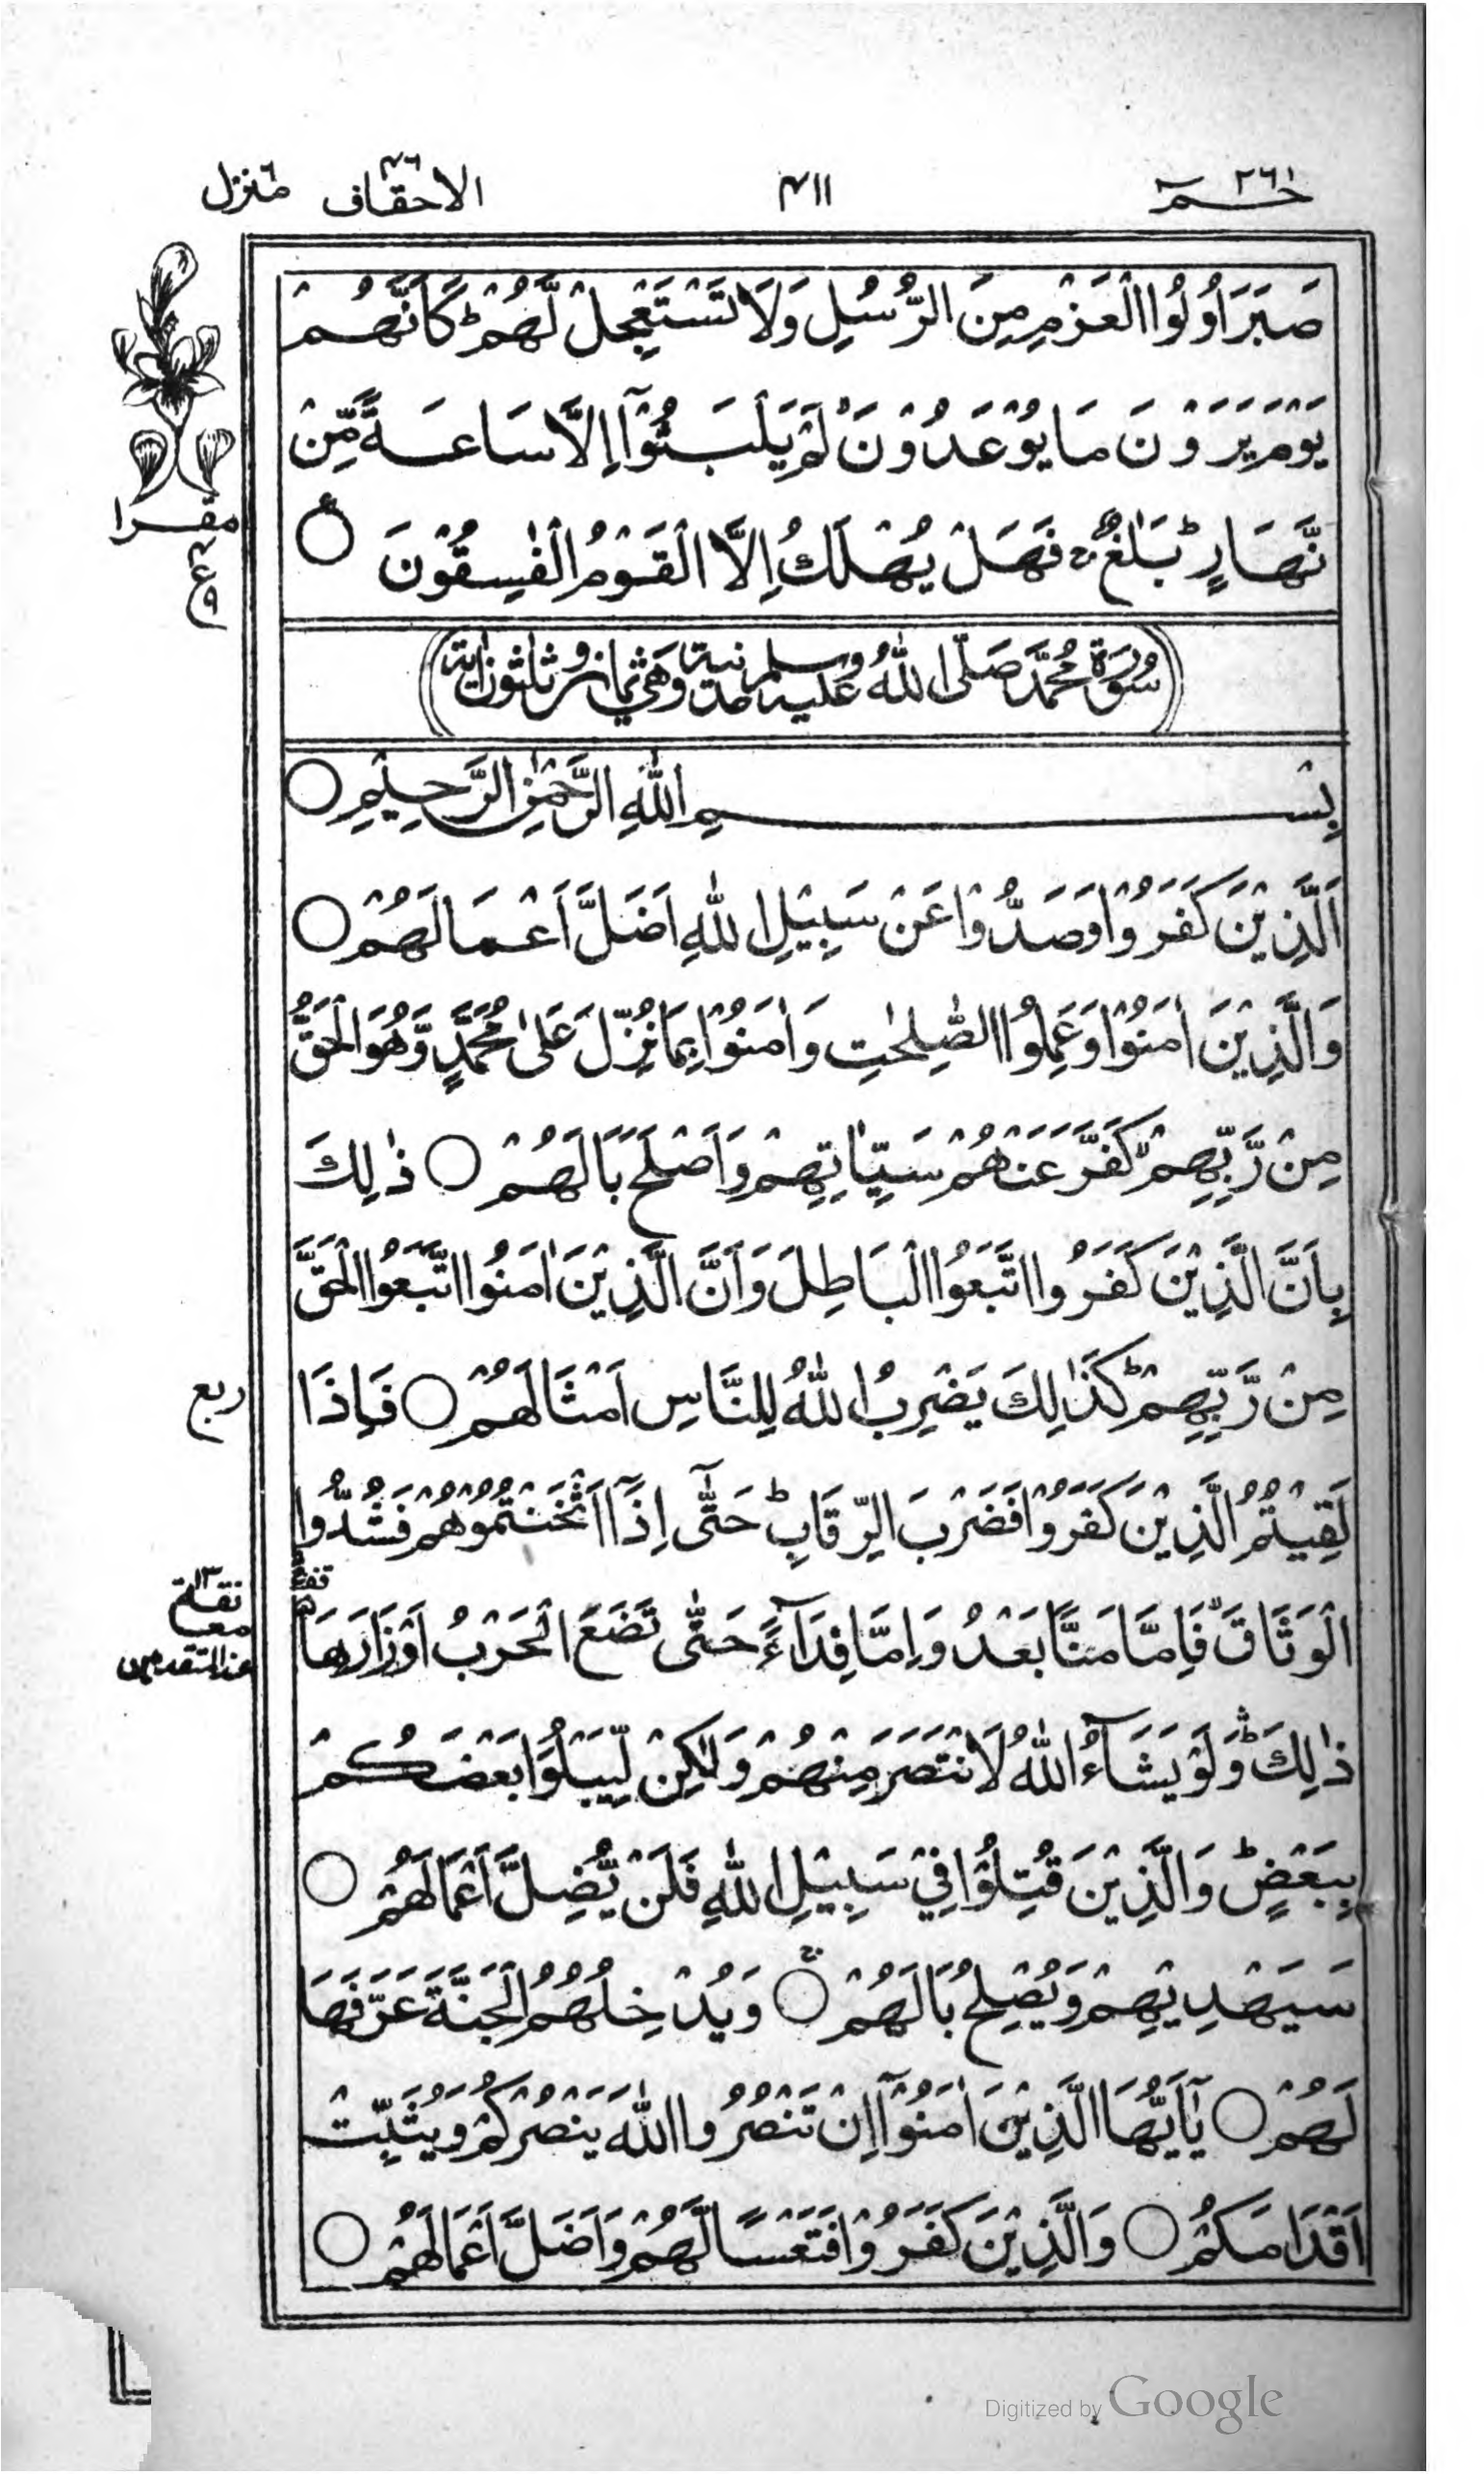 حٰمٓ ٢٦
٧١١
الاحقاف ٤٦
منزل ٦
صَبَرَ اُولُوا الْعَزْمِ مِنَ الرُّسُلِ وَلَا تَسْتَعْجِلْ لَّهُمْ ؕ كَاَنَّهُمْ
يَوْمَ يَرَوْنَ مَا يُوْعَدُوْنَ ۙ لَمْ يَلْبَثُوْٓا اِلَّا سَاعَةً مِّنْ
نَّهَارٍ ؕ بَلٰغٌ ۚ فَهَلْ يُهْلَكُ اِلَّا الْقَوْمُ الْفٰسِقُوْنَ ○
مقرا
سُوْرَةُ مُحَمَّدٍ صَلَّى اللّٰهُ عَلَيْهِ وَسَلَّمَ مدنية وَهِيَ ثمان وثلٰثون اٰية
بِسْمِ اللّٰهِ الرَّحْمٰنِ الرَّحِيْمِ ○
اَلَّذِيْنَ كَفَرُوْا وَصَدُّوْا عَنْ سَبِيْلِ اللّٰهِ اَضَلَّ اَعْمَالَهُمْ ○
وَالَّذِيْنَ اٰمَنُوْا وَعَمِلُوا الصّٰلِحٰتِ وَاٰمَنُوْا بِمَا نُزِّلَ عَلٰى مُحَمَّدٍ وَّهُوَ الْحَقُّ
مِنْ رَّبِّهِمْ ۙ كَفَّرَ عَنْهُمْ سَيِّاٰتِهِمْ وَاَصْلَحَ بَالَهُمْ ○ ذٰلِكَ
بِاَنَّ الَّذِيْنَ كَفَرُوا اتَّبَعُوا الْبَاطِلَ وَاَنَّ الَّذِيْنَ اٰمَنُوا اتَّبَعُوا الْحَقَّ
مِنْ رَّبِّهِمْ ؕ كَذٰلِكَ يَضْرِبُ اللّٰهُ لِلنَّاسِ اَمْثَالَهُمْ ○ فَاِذَا
ربع
لَقِيْتُمُ الَّذِيْنَ كَفَرُوْا فَضَرْبَ الرِّقَابِ ؕ حَتّٰٓى اِذَآ اَثْخَنْتُمُوْهُمْ فَشُدُّوا
الْوَثَاقَ ۙ فَاِمَّا مَنًّا بَعْدُ وَاِمَّا فِدَآءً حَتّٰى تَضَعَ الْحَرْبُ اَوْزَارَهَا
عند المتقدمين
ذٰلِكَ ؕ وَلَوْ يَشَآءُ اللّٰهُ لَانْتَصَرَ مِنْهُمْ وَلٰكِنْ لِّيَبْلُوَا بَعْضَكُمْ
بِبَعْضٍ ؕ وَالَّذِيْنَ قُتِلُوْا فِيْ سَبِيْلِ اللّٰهِ فَلَنْ يُّضِلَّ اَعْمَالَهُمْ ○
سَيَهْدِيْهِمْ وَيُصْلِحُ بَالَهُمْ ○ وَيُدْخِلُهُمُ الْجَنَّةَ عَرَّفَهَا
لَهُمْ ○ يٰٓاَيُّهَا الَّذِيْنَ اٰمَنُوْٓا اِنْ تَنْصُرُوا اللّٰهَ يَنْصُرْكُمْ وَيُثَبِّتْ
اَقْدَامَكُمْ ○ وَالَّذِيْنَ كَفَرُوْا فَتَعْسًا لَّهُمْ وَاَضَلَّ اَعْمَالَهُمْ ○
Digitized by Google